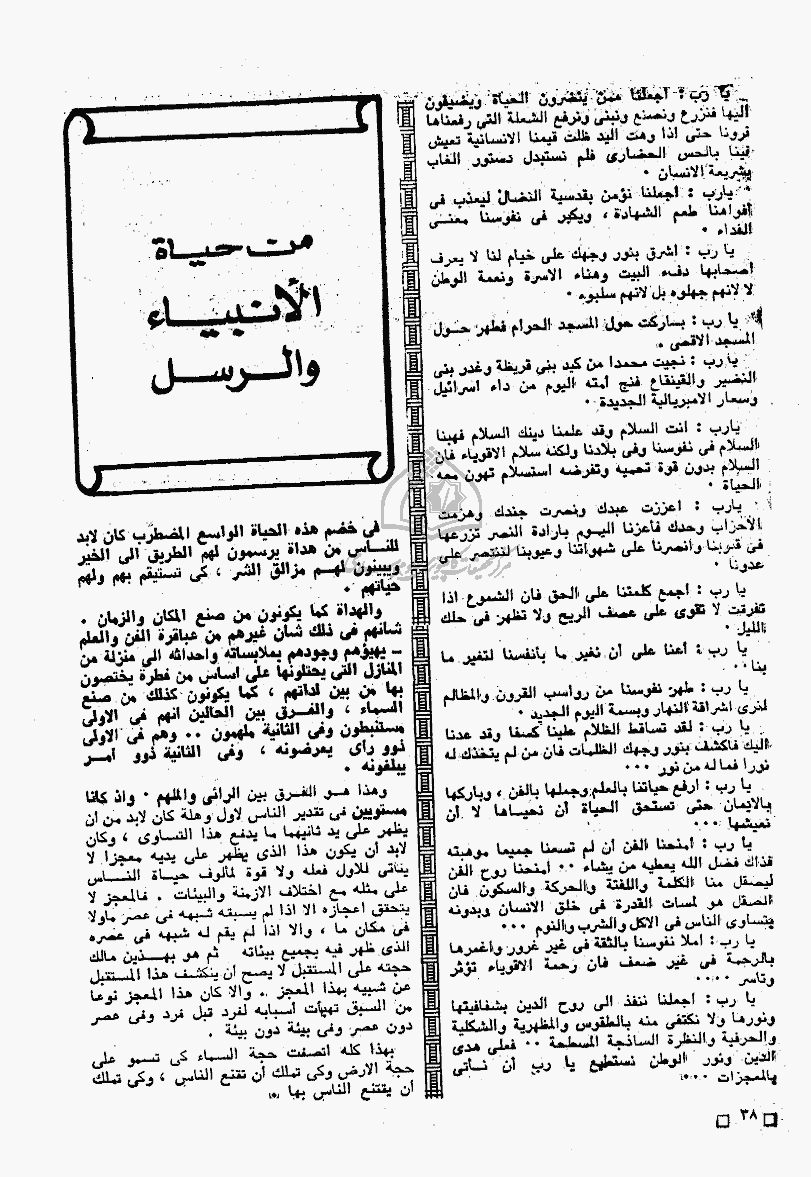 يا رب : اجعلنا ممن ينضرون الحياة ويضيفون
اليها فنزرع ونصنع ونبنى ونرفع الشعلة التى رفعناها
قرونا حتى اذا وهت اليد ظلت قيمنا الانسانية تعيش
فينا بالحس الحضارى فلم نستبدل دستور الغاب
بشريعة الانسان ٠
يارب : اجعلنا نؤمن بقدسية النضال ليعذب فى
أفواهنا طعم الشهادة ، ويكبر فى نفوسنا معنى
الفداء ٠
يا رب : أشرق بنور وجهك على خيام لنا لا يعرف
أصحابها دفء البيت وهناء الاسرة ونعمة الوطن
لا لانهم جهلوه بل لانهم سلبوه ٠
يا رب : باركت حول المسجد الحرام فطهر حول
المسجد الاقصى ٠
يا رب : نجيت محمدا من كيد بنى قريظة وغدر بنى
النضير والقينقاع فنج أمته اليوم من داء اسرائيل
وسعار الامبريالية الجديدة ٠
يارب : انت السلام وقد علمنا دينك السلام فهبنا
السلام فى نفوسنا وفى بلادنا ولكنه سلام الاقوياء فان
السلام بدون قوة تحميه وتفرضه استسلام تهون معه
الحياة ٠
يارب : اعززت عبدك ونصرت جندك وهزمت
الاحزاب وحدك فأعزنا اليوم بارادة النصر تزرعها
فى قلوبنا وانصرنا على شهواتنا وعيوبنا لننتصر على
عدونا ٠
يا رب : أجمع كلمتنا على الحق فان الشموع اذا
تفرقت لا تقوى على عصف الريح ولا تظهر فى حلك
الليل ٠
يا رب : أعنا على أن نغير ما بأنفسنا لتغير ما
بنا ٠٠
يا رب : طهر نفوسنا من رواسب القرون والمظالم
لنرى اشراقة النهار وبسمة اليوم الجديد ٠
يا رب : لقد تساقط الظلام علينا كسفا وقد عدنا
اليك فاكشف بنور وجهك الظلمات فان من لم يتخذك له
نورا فما له من نور ٠٠٠
يا رب : ارفع حياتنا بالعلم وجملها بالفن ، وباركها
بالايمان حتى تستحق الحياة أن نحياها لا أن
نعيشها ٠٠٠
يا رب : أمنحنا الفن أن لم تسعنا جميعا موهبته
فذاك فضل الله يعطيه من يشاء ٠٠ أمنحنا روح الفن
ليصقل منا الكلمة واللفتة والحركة والسكون فان
الصقل هو لمسات القدرة فى خلق الانسان وبدونه
يتساوى الناس فى الاكل والشرب والنوم ٠٠٠
يا رب : املا نفوسنا بالثقة فى غير غرور واغمرها
بالرحمة فى غير ضعف فان رحمة الاقوياء تؤثر
وتاسر ٠٠٠٠
يا رب : اجعلنا ننفذ الى روح الدين بشفافيتها
ونورها ولا نكتفى منه بالطقوس والمظهرية والشكلية
والحرفية والنظرة الساذجة المسطحة ٠٠ فعلى هدى
الدين ونور الوطن نستطيع يا رب أن نأتى
بالمعجزات ٠٠٠
من حياة
الأنبياء
والرسل
فى خضم هذه الحياة الواسع المضطرب كان لابد
للناس من هداة يرسمون لهم الطريق الى الخير
ويبينون لهم مزالق الشر ، كى تستقيم بهم ولهم
حياتهم ٠
والهداة كما يكونون من صنع المكان والزمان .
شانهم فى ذلك شان غيرهم من عباقرة الفن والعلم
– يهيؤهم وجودهم بملابساته واحداثه الى منزلة من
المنازل التى يحتلونها على اساس من فطرة يختصون
بها من بين لداتهم ، كما يكونون كذلك من صنع
السماء ، والفرق بين الحالين انهم فى الاولى
مستنبطون وفى الثانية ملهمون ٠٠ وهم فى الاولى
ذوو رأى يعرضونه ، وفى الثانية ذوو أمر
يبلغونه ٠
وهذا هو الفرق بين الرائى والملهم ٠ واذ كانا
مستويين فى تقدير الناس لاول وهلة كان لابد من أن
يظهر على يد ثانيهما ما يدفع هذا التساوى ، وكان
لابد أن يكون هذا الذى يظهر على يديه معجزا لا
يتاتى للاول فعله ولا قوة لمالوف حياة الناس
على مثله مع اختلاف الازمنة والبيئات . فالمعجز لا
يتحقق اعجازه الا اذا لم يسبقه شبهه فى عصر ماولا
فى مكان ما ، والا اذا لم يقم له شبهه فى عصره
الذى ظهر فيه بجميع بيئاته ثم هو بهذين مالك
حجته على المستقبل لا يصح أن ينكشف هذا المستقبل
عن شبيه بهذا المعجز .. والا كان هذا المعجز نوعا
من السبق تهيأت أسبابه لفرد قبل فرد وفى عصر
دون عصر وفى بيئة دون بيئة ٠
بهذا كله اتصفت حجة السماء كى تسمو على
حجة الارض وكى تملك أن تقنع الناس ، وكى تملك
أن يقتنع الناس بها
٣٨